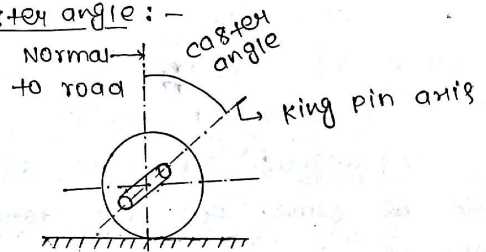 ster angle : -
Normal
to road
caster
angle
King pin axis